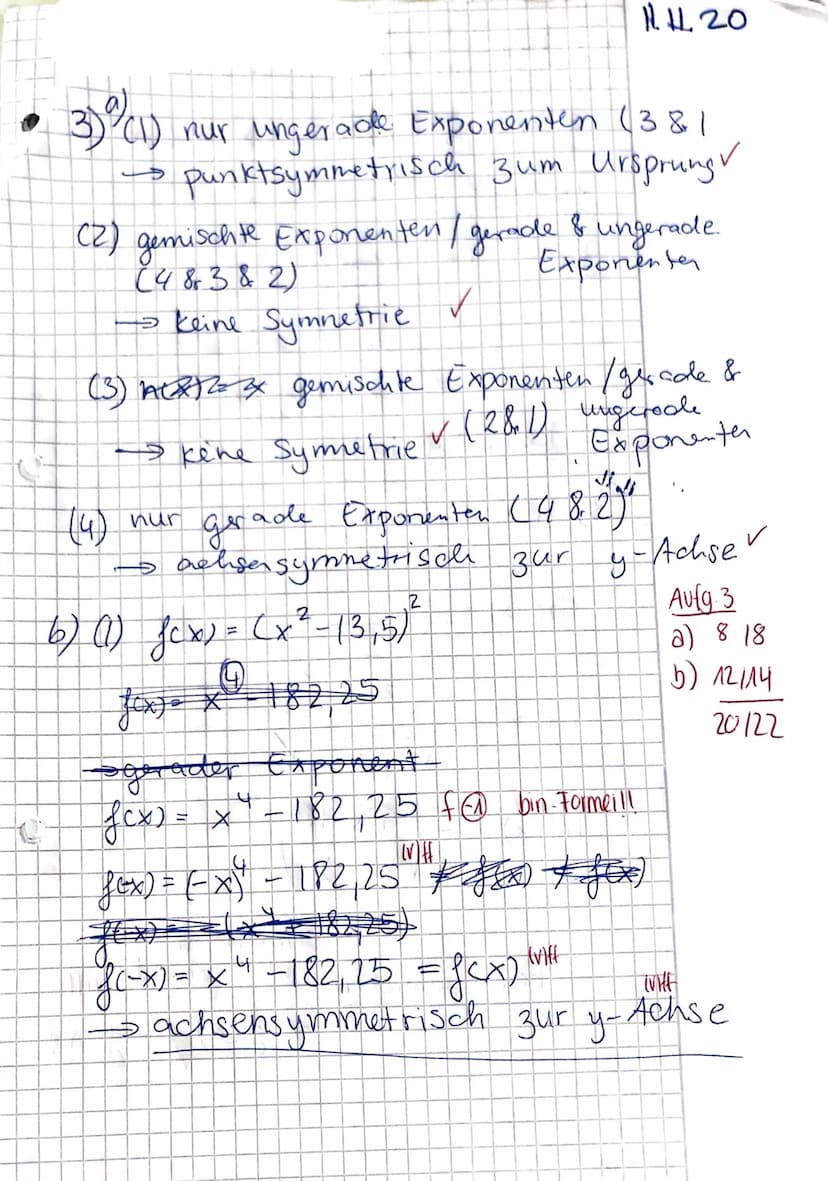 11.11.20
3) a) (1) nur ungerade Exponenten (3 & 1
→ punktsymmetrisch zum Ursprung ✓
(2) gemischte Exponenten / gerade & ungerade
Exponenten
(4 & 3 & 2)
→ keine Symmetrie ✓
(3) gemischte Exponenten / gerade &
ungerade
Exponenten
(2 & 1)
→ keine Symmetrie ✓
(4) nur gerade Exponenten (4 & 2)
→ achsensymmetrisch zur y-Achse ✓
Aufg. 3
a) 8 / 8
b) 12/14
20/22
b) (1) f(x) = (x² - 13,5)²
f(x) = x⁴ - 182,25
→ gerader Exponent
f(x) = x⁴ - 182,25 f (-1) bin. Formel!!
f(-x) = (-x)⁴ - 182,25 (v)ff
f(-x) = x⁴ - 182,25 = f(x) (v)ff
→ achsensymmetrisch zur y-Achse (v)ff